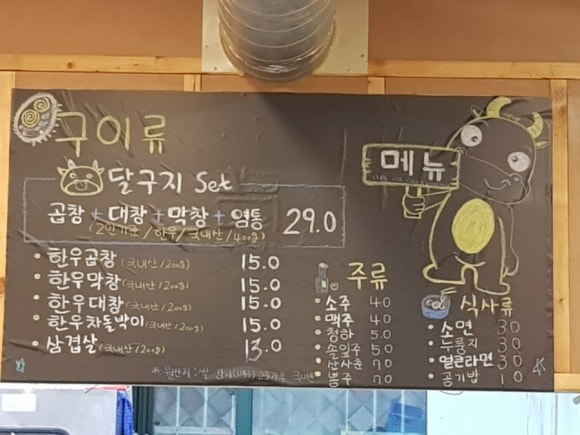 구이류
달구지 Set
곱창 + 대창 + 막창 + 염통 29.0
(2인기준 / 한우 / 국내산 / 400g)
• 한우곱창 (국내산 / 200g) 15.0
• 한우막창 (국내산 / 200g) 15.0
• 한우대창 (국내산 / 200g) 15.0
• 한우차돌박이 (국내산 / 200g) 15.0
• 삼겹살 (국내산 / 200g) 13.0
* 원산지 : 쌀 국내산
메뉴
주류
• 소주 4.0
• 맥주 4.0
• 청하 5.0
• 솔잎주 5.0
• 산사춘 7.0
• 뽕주 7.0
식사류
• 소면 3.0
• 누룽지 3.0
• 얼큰라면 3.0
• 공기밥 1.0